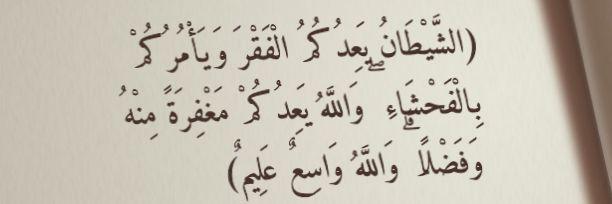 (الشَّيْطَانُ يَعِدُكُمُ الْفَقْرَ وَيَأْمُرُكُمْ
بِالْفَحْشَاءِ ۖ وَاللَّهُ يَعِدُكُمْ مَغْفِرَةً مِنْهُ
وَفَضْلًا ۗ وَاللَّهُ وَاسِعٌ عَلِيمٌ)